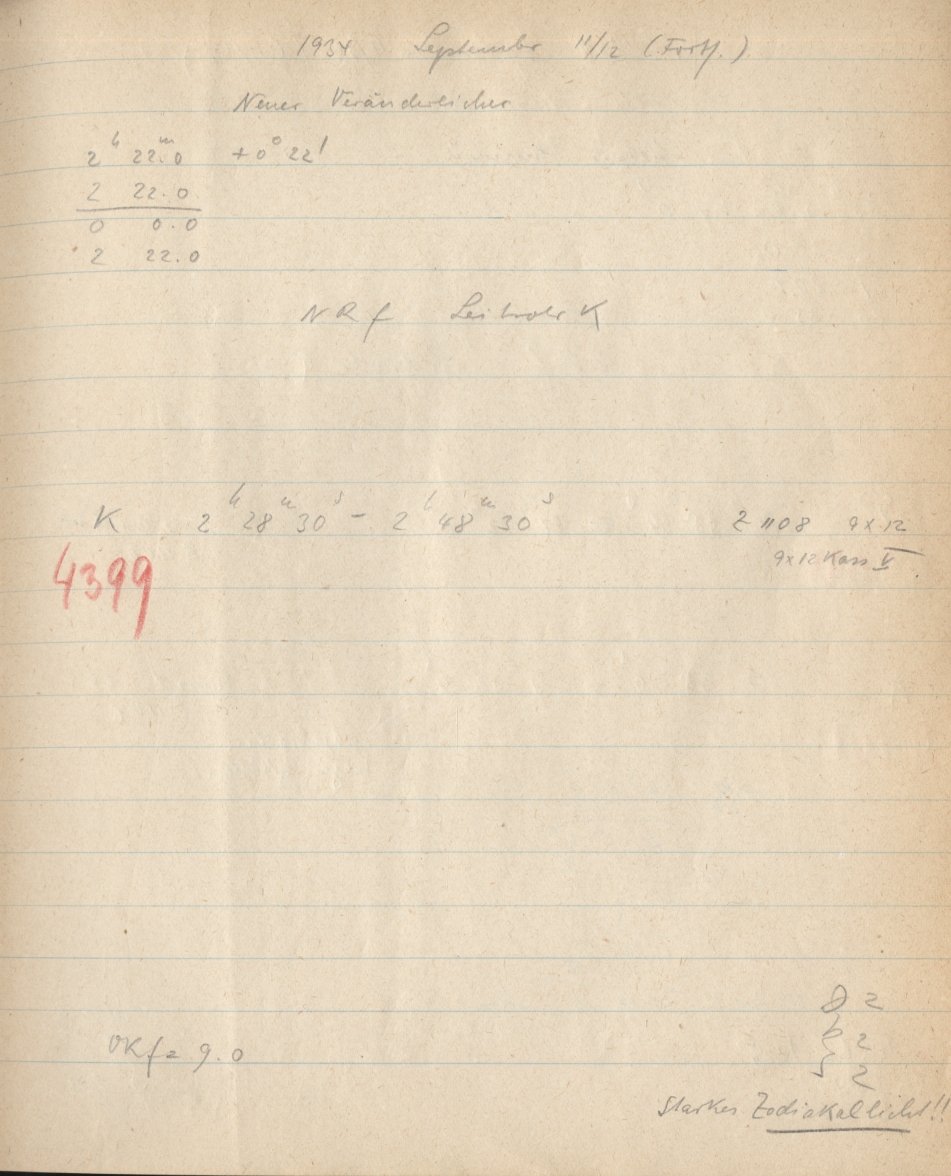 1934 September 11/12 (Fortf.)
Neuer Veränderlicher
2ʰ 22ᵐ.0 +0° 22'
2 22.0
0 0.0
2 22.0
NRf Leitrohr K
K 2ʰ 28ᵐ 30ˢ - 2ʰ 48ᵐ 30ˢ Z 1108 9x12
9x12 Kass V
4399
2
2
OKf = 9.0
S 2
Starkes Zodiakallicht!!